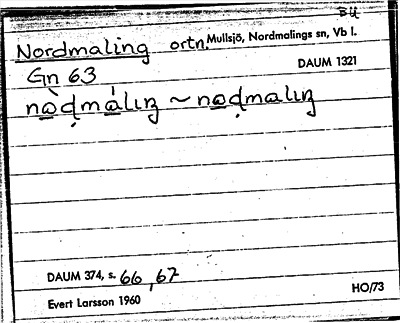 BU
Nordmaling ortn. Mullsjö, Nordmalings sn, Vb l.
Gn 63
DAUM 1321
nɑ̀ḍmálıŋ ~ nɑḍmalıŋ
DAUM 374, s. 66, 67
Evert Larsson 1960
HO/73